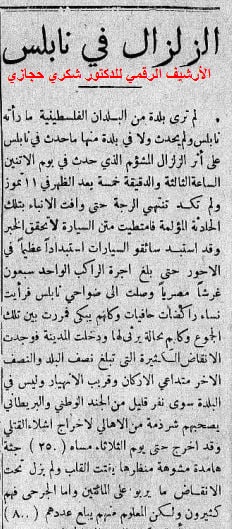 الزلزال في نابلس
الأرشيف الرقمي للدكتور شكري حجازي
• لم ترى بلدة من البلدان الفلسطينية ما رأته
نابلس ولم يحدث ولا في بلدة منها ماحدث في نابلس
على أثر الزلزال المشؤم الذي حدث في يوم الاثنين
الساعة الثالثة والدقيقة خمسة بعد الظهر في ١١ تموز
ولم تكد تنتهي الرجة حتى وافت الانباء بتلك
الحادثة المؤلمة فامتطيت متن السيارة لاتحقق الخبر
وقد استبد سائقو السيارات استبداداً عظيماً في
الاجور حتى بلغ اجرة الراكب الواحد سبعون
غرشاً مصرياً وصلت الى ضواحي نابلس فرأيت
نساء راكضات حافيات وكلهم يبكي فمررت بين تلك
الجموع وكلهم بحالة يرثى لها ودخلت المدينة فوجدت
الانقاض الكثيرة التي تبلغ نصف البلد والنصف
الاخر متداعي الاركان وقريب الانهيار وليس في
البلدة سوى نفر قليل من الجند الوطني والبريطاني
يصحبهم شرذمة من الاهالي لاخراج اشلاء القتلى
وقد اخرج حتى يوم الثلاثاء مساء (٢٥٠) جثة
هامدة مشوهة منظرها يفتت القلب ولم يزل تحت
الانقاض ما يربو على المائتين واما الجرحى فهم
كثيرون ولكن المعلوم منهم يبلغ عددهم (٨٠٠)